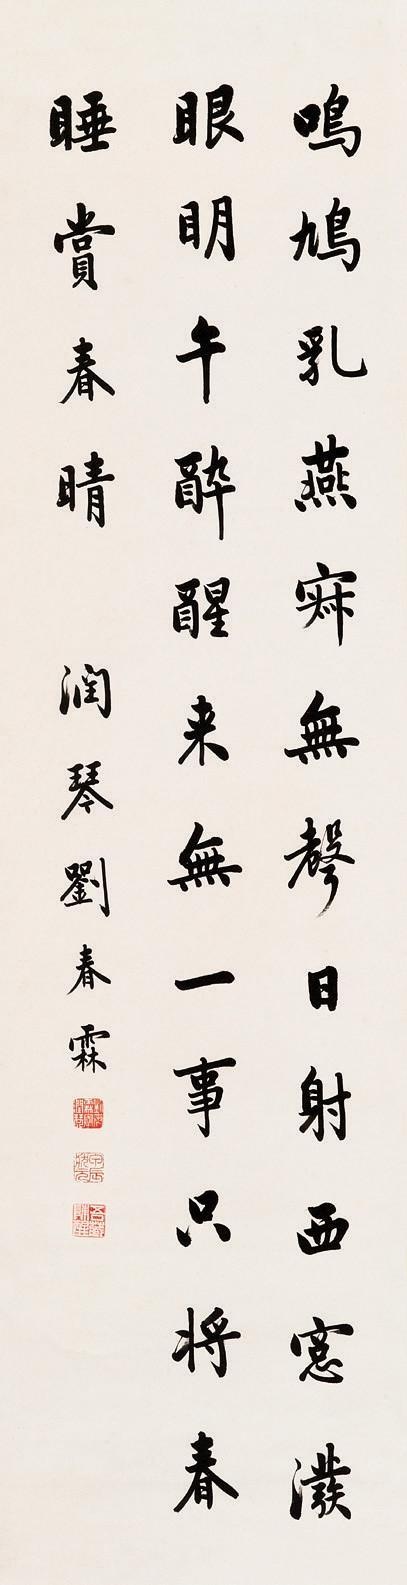 鳴鳩乳燕寂無聲日射西窻潑
眼明午酔醒来無一事只将春
睡賞春晴
潤琴劉春霖